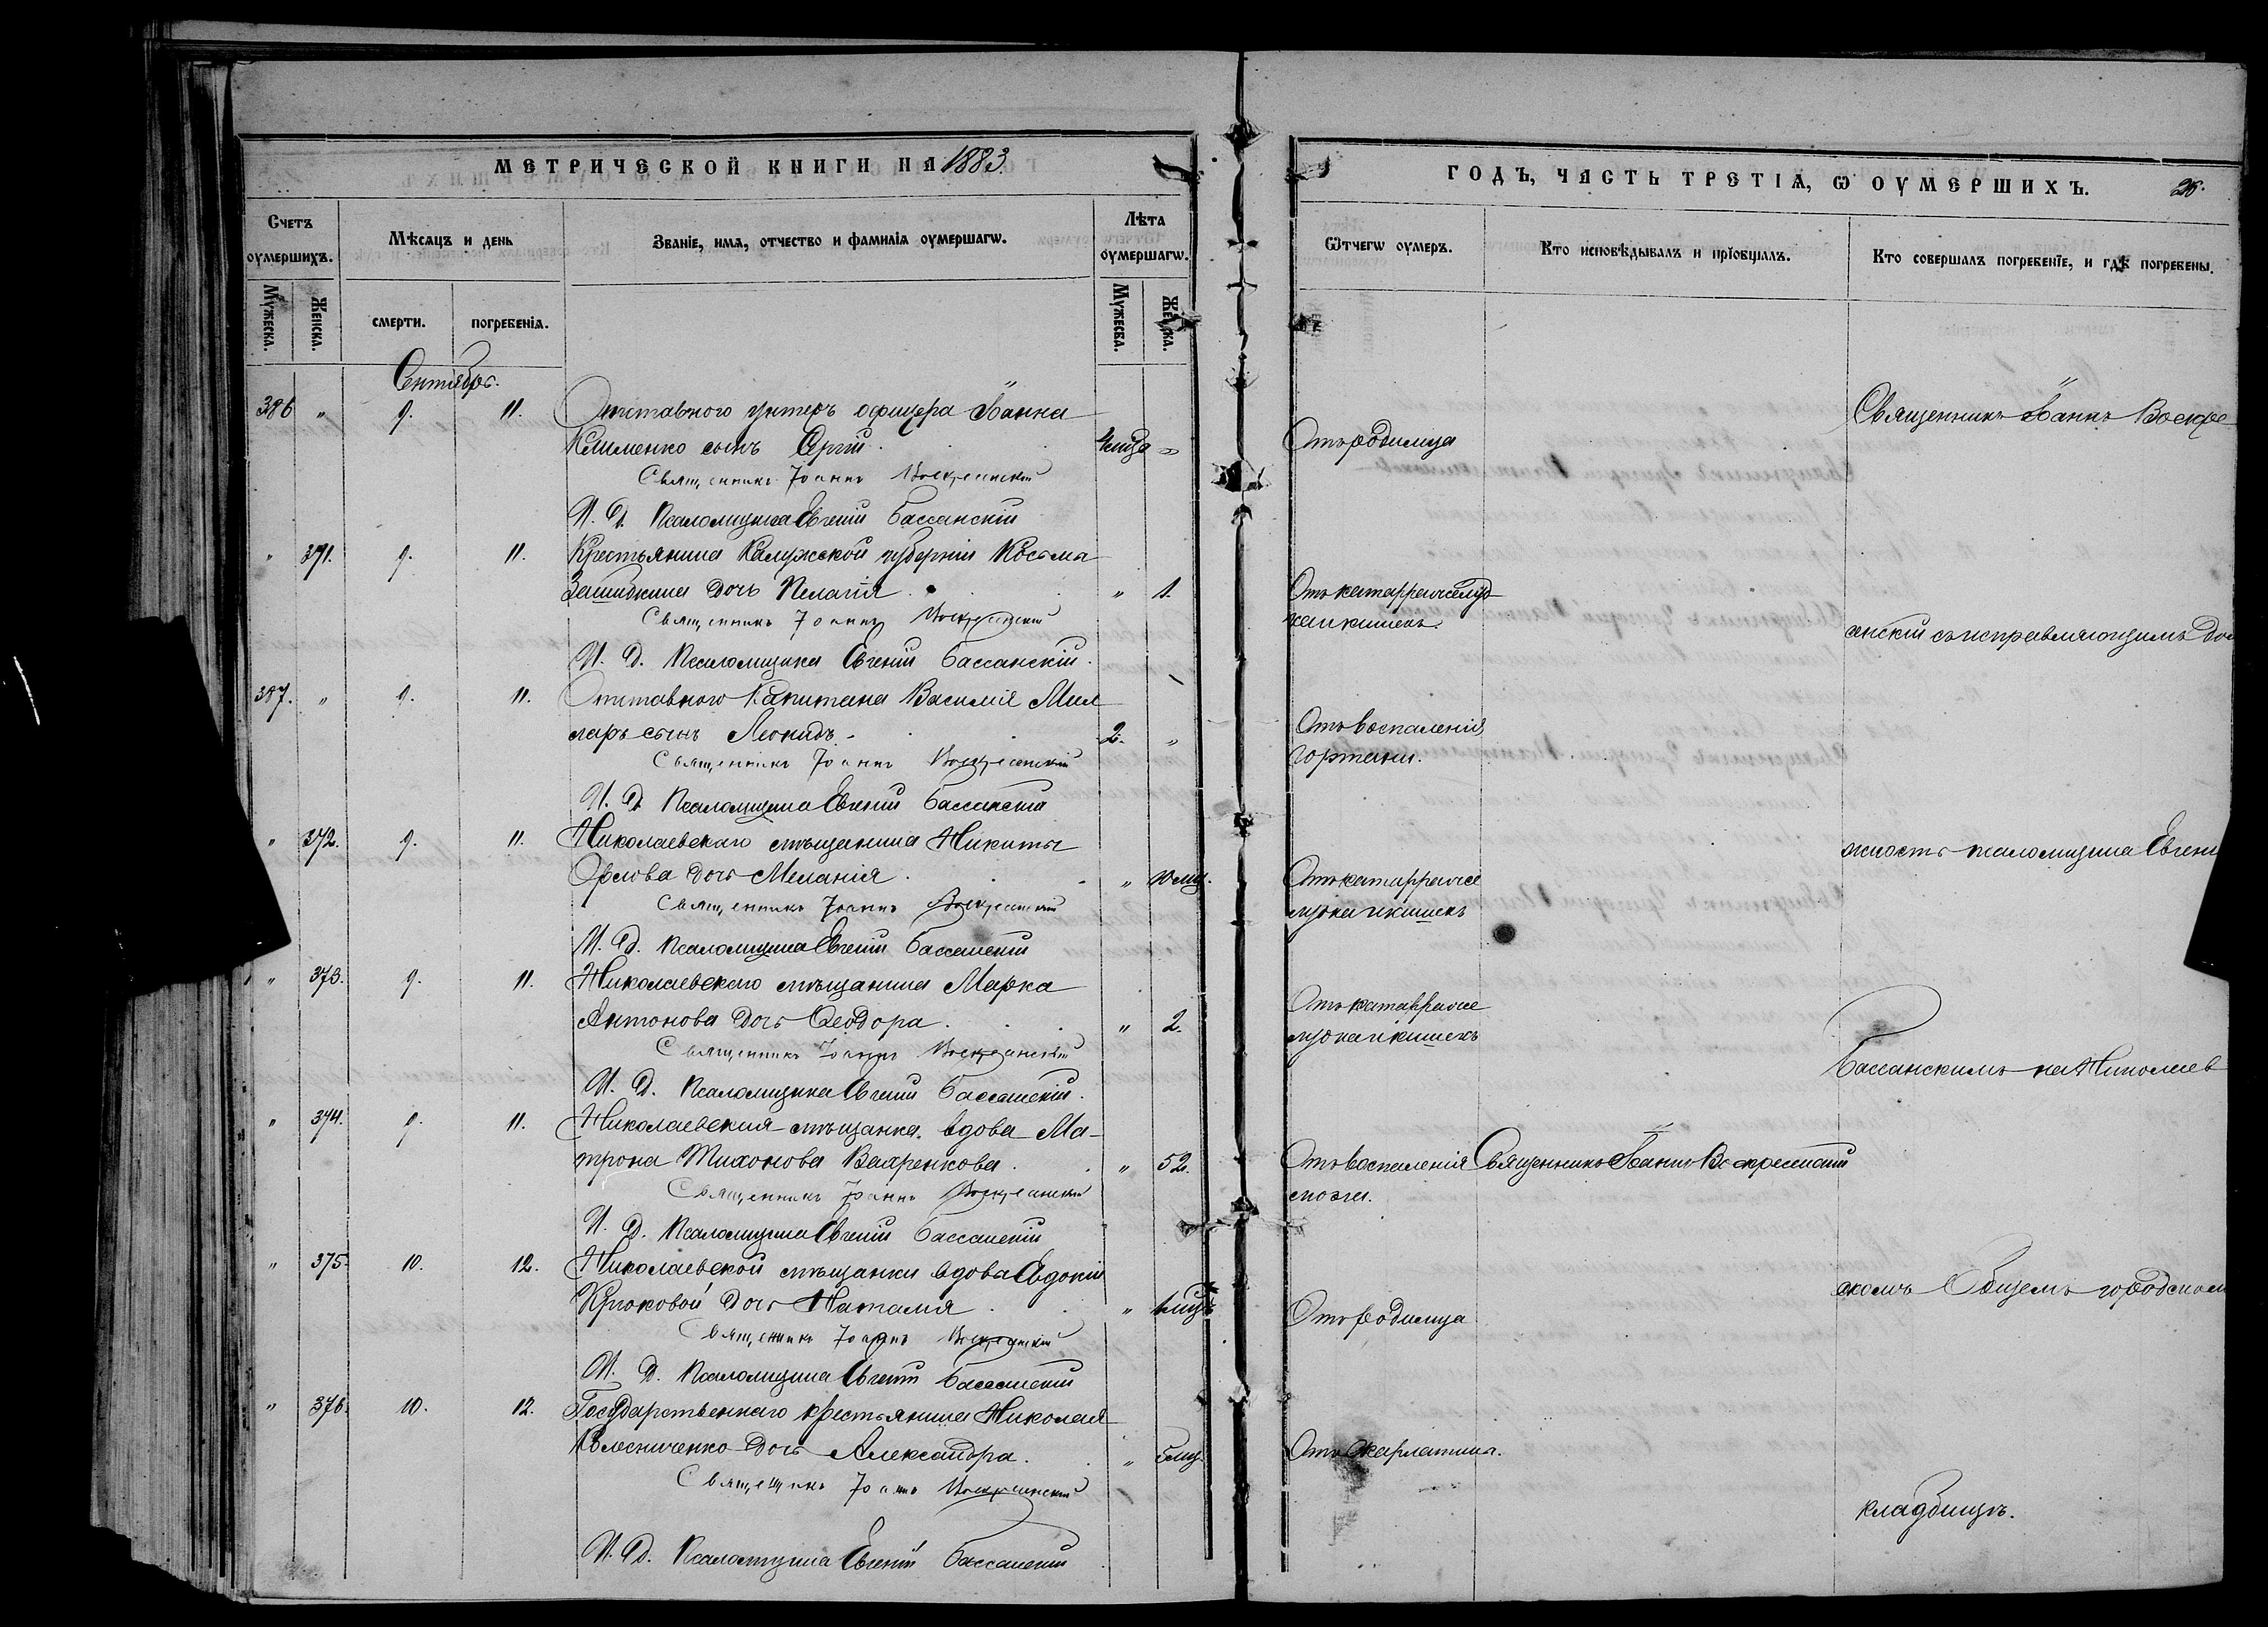 МЕТРИЧЕСКОЙ КНИГИ НА 1883.
ГОДЪ, ЧАСТЬ ТРЕТІѦ, Ѡ ОУМЕРШИХЪ.
Счетъ оумершихъ.
Мѣсяцъ и день
Званіе, имѧ, отчество и фамиліѧ оумершагѡ.
Лѣта оумершагѡ.
Ѿчегѡ оумеръ.
Кто исповѣдывалъ и пріобщалъ.
Кто совершалъ погребеніе, и гдѣ погребены.
Мужеска.
Женска.
смерти.
погребеніѧ.
Мужеска.
Женска.
Сентябрь.
386 " 9. 11. Отставного унтеръ офицера Іоанна
Клименко сынъ Сергій "
Отъ родимца
Священникъ Іоаннъ Воскресенскій
И. Д. Псаломщика Евгеній Бассанскій
" 371. 9. 11. Крестьянина Калужской губерніи Косьма
дочь Пелагія " 1.
Отъ катарра желуд
ка и кишекъ.
Священникъ Іоаннъ Воскресенскій
И. Д. Псаломщика Евгеній Бассанскій.
387. " 9. 11. Отставного Капитана Василія Мил
ларъ сынъ Леонидъ 2. "
Отъ воспаленія
гортани.
Священникъ Іоаннъ Воскресенскій
И. Д. Псаломщика Евгеній Бассанскій
" 372. 9. 11. Николаевскаго мѣщанина Никиты
Орлова дочь Меланія " 10 мц.
Отъ катарра же
лудка и кишекъ
Священникъ Іоаннъ Воскресенскій
И. Д. Псаломщика Евгеній Бассанскій
" 373. 9. 11. Николаевскаго мѣщанина Марка
Антонова дочь Ѳеодора " 2.
Отъ катарра же
лудка и кишекъ
Священникъ Іоаннъ Воскресенскій
И. Д. Псаломщика Евгеній Бассанскій.
" 374. 9. 11. Николаевская мѣщанка вдова Ма-
трона Тихонова Вахренкова " 52.
Отъ воспаленія
мозга.
Священникъ Іоаннъ Воскресенскій
Священникъ Іоаннъ Воскресенскій
И. Д. Псаломщика Евгеній Бассанскій
" 375. 10. 12. Николаевской мѣщанки вдова Евдокіи
Крюковой дочь Наталія "
Отъ родимца
Священникъ Іоаннъ Воскресенскій
И. Д. Псаломщика Евгеній Бассанскій
" 376. 10. 12. Государственнаго крестьянина Николая
Колесниченко дочь Александра. " 5 мц.
Отъ скарлатина.
Священникъ Іоаннъ Воскресенскій
И. Д. Псаломщика Евгеній Бассанскій
Священникъ Іоаннъ Воскре
сенскій съ исправляющимъ дол
жность псаломщика Евгені
Бассанскимъ на Николаев
скомъ Общемъ городском
кладбищѣ.